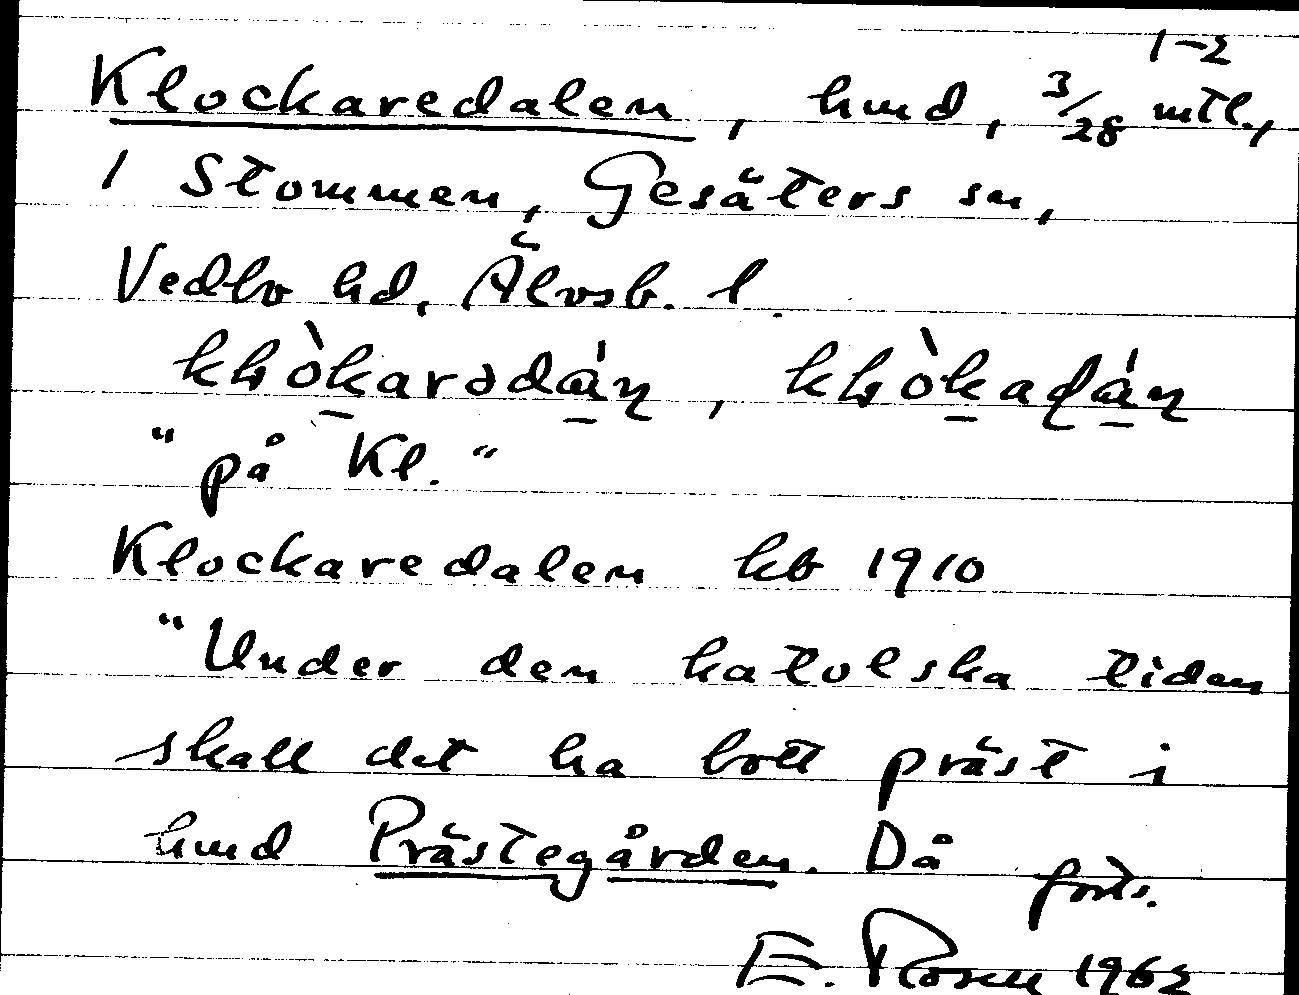 1-2
Klockaredalen, hmd, 3/28 mtl.,
1 Stommen, Gesäters sn,
Vedbo hd, Älvsb. l.
"på Kl."
Klockaredalen kb 1910
"Under den katolska tiden
skall det ha bott präst i
hmd Prästegården. Då forts.
E. Rosell 1962